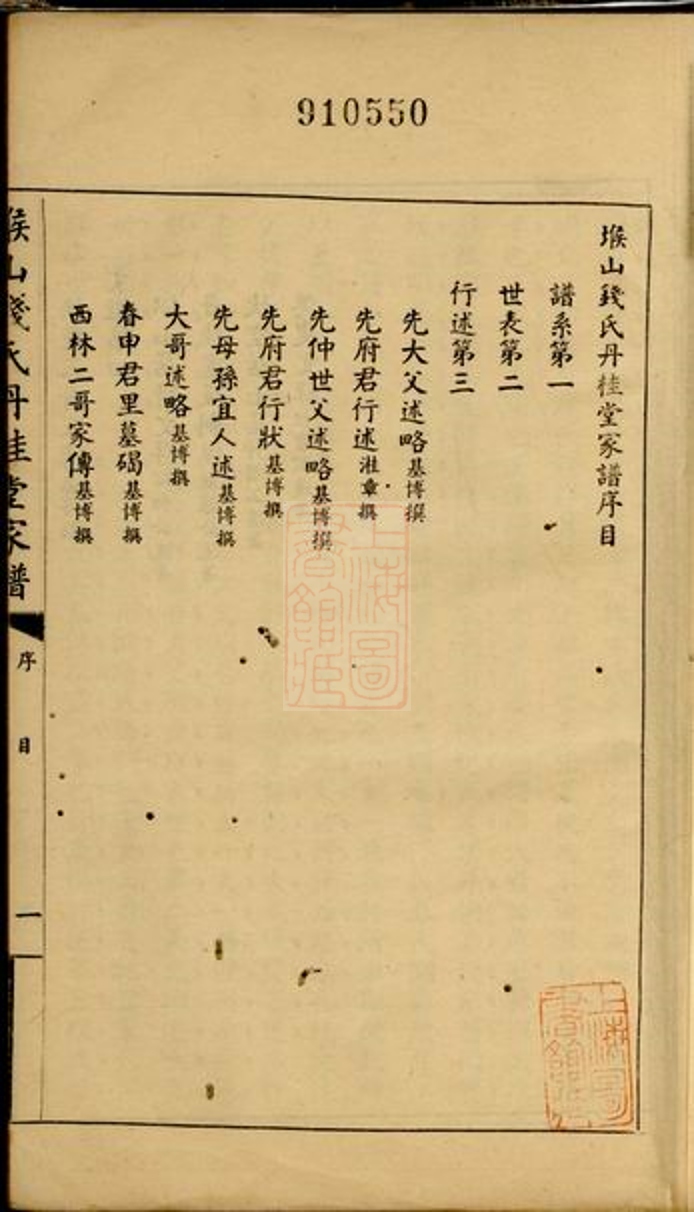 910550
堠山錢氏丹桂堂家譜序目
譜系第一
世表第二
行述第三
先大父述略基博撰
先府君行述湘章撰
先仲世父述略基博撰
先府君行狀基博撰
先母孫宜人述基博撰
大哥述略基博撰
春申君里墓碣基博撰
西林二哥家傳基博撰
堠山錢氏丹桂堂家譜
序目
一
上海圖書館藏
上海圖書館藏